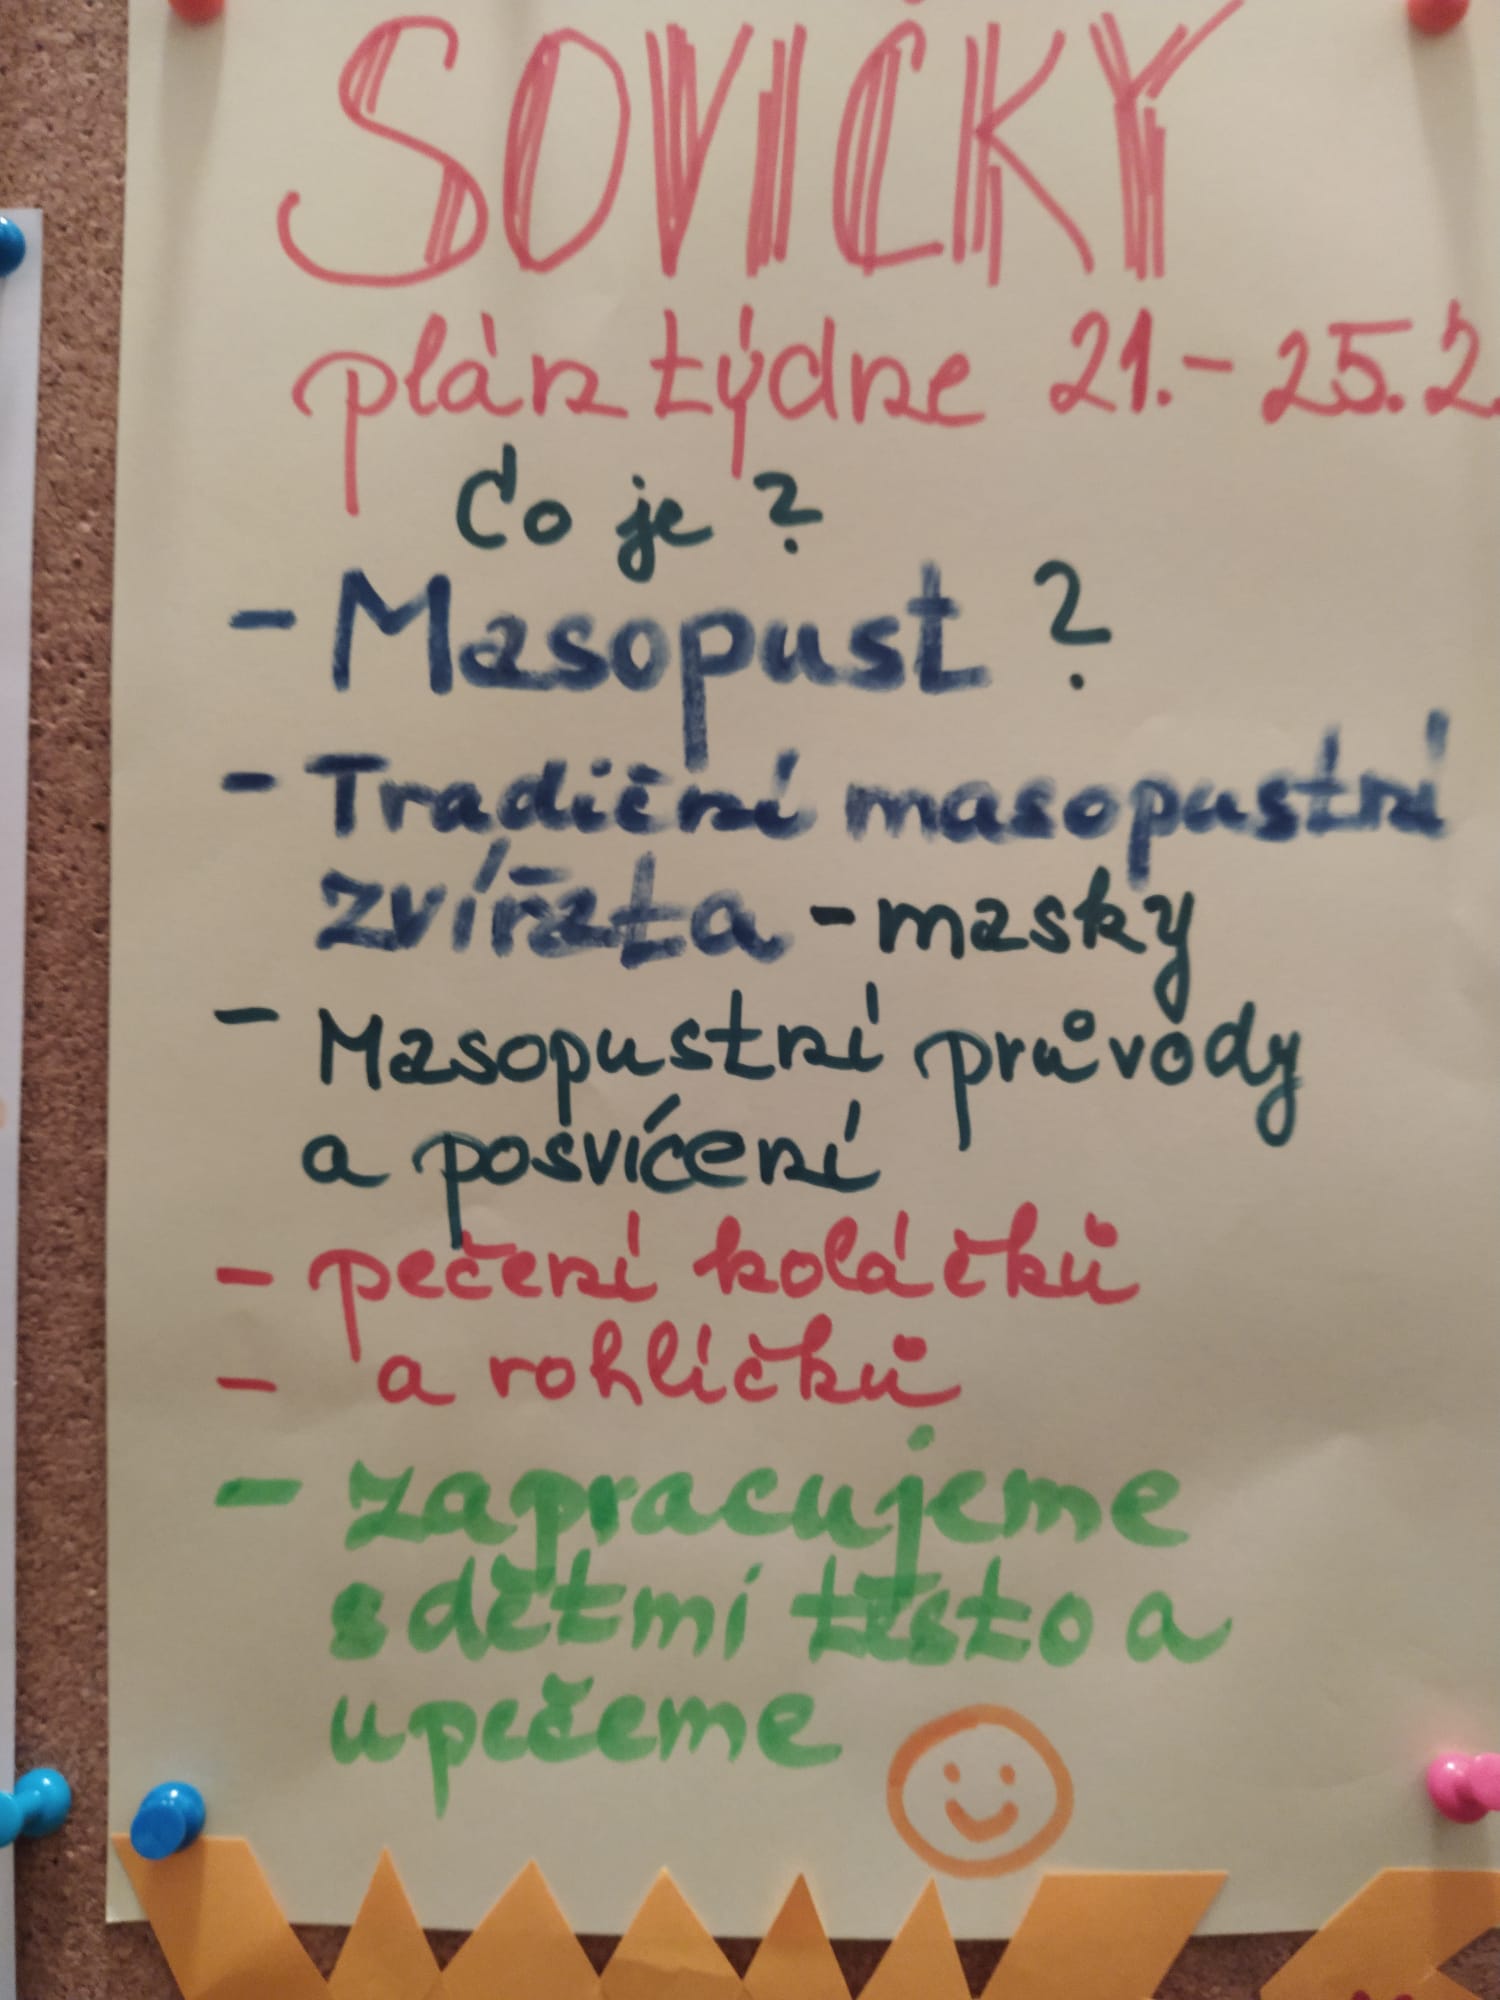 SOVIČKY
plán týdne 21.- 25.2.
Co je?
- Masopust?
- Tradiční masopustní
zvířata - masky
- Masopustní průvody
a posvícení
- pečení koláčků
- a rohlíčků
- zapracujeme
s dětmi těsto a
upečeme